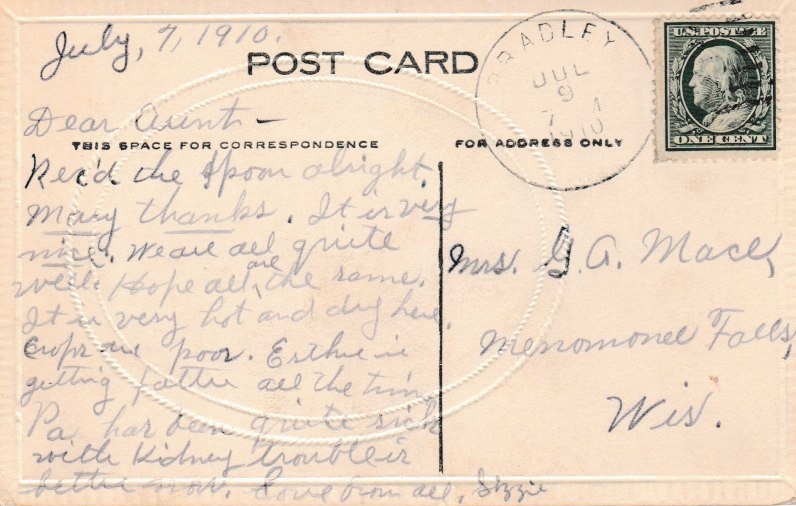 July, 7, 1910.
POST CARD
BRADLEY
JUL
9
7 M
1910
U.S. POSTAGE
ONE CENT
Dear Aunt—
THIS SPACE FOR CORRESPONDENCE
FOR ADDRESS ONLY
Rec'd the Spoon alright.
Many thanks. It is very
nice. We are all quite
well. Hope all are the same.
It is very hot and dry here.
Crops are poor. Esther is
getting fatter all the time
Pa has been quite sick
with Kidney trouble is
better now. Love from all, Lizzie
Mrs. G. A. Mace,
Menomonee Falls,
Wis.